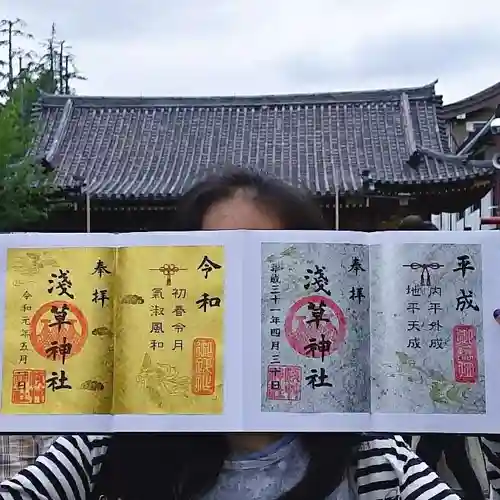 令和
初春令月
氣淑風和
奉拝
淺草神社
令和元年五月
日
平成
内平外成
地平天成
奉拝
淺草神社
平成三十一年四月三十日